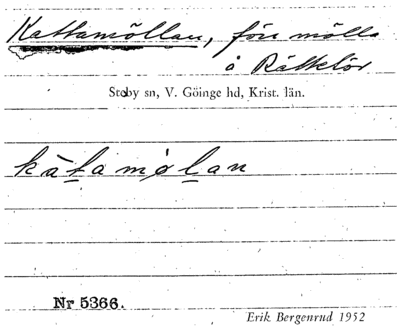 Kattamöllan, förr mölla
å Rättelöv
Stoby sn, V. Göinge hd, Krist. län.
kàtamølan
Nr 5366.
Erik Bergenrud 1952